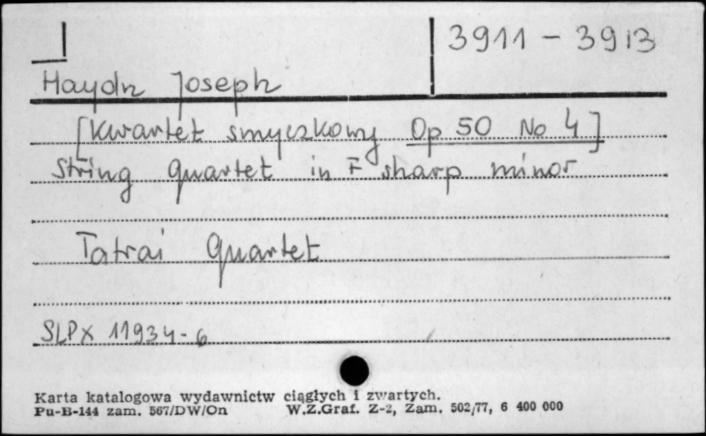 3911 - 3913
Haydn Joseph
[Kwartet smyczkowy Op 50 No 4]
String quartet in F sharp minor
Tatrai Quartet
SLPX 11934-6
Karta katalogowa wydawnictw ciągłych i zwartych.
Pu-B-144 zam. 567/DW/On W.Z.Graf. Z-2, Zam. 502/77, 6 400 000